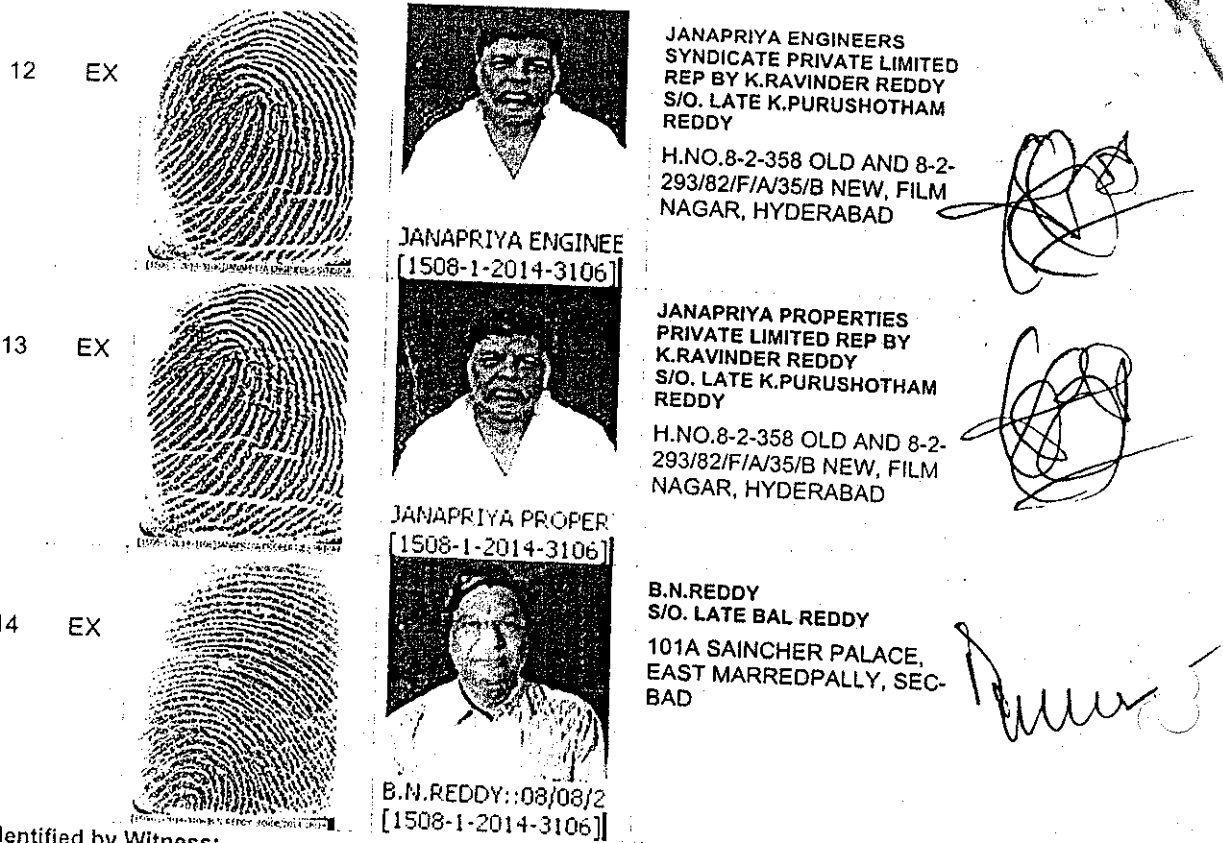 12 EX
JANAPRIYA ENGINEE
[1508-1-2014-3106]
JANAPRIYA ENGINEERS
SYNDICATE PRIVATE LIMITED
REP BY K.RAVINDER REDDY
S/O. LATE K.PURUSHOTHAM
REDDY
H.NO.8-2-358 OLD AND 8-2-
293/82/F/A/35/B NEW, FILM
NAGAR, HYDERABAD
13 EX
JANAPRIYA PROPER
[1508-1-2014-3106]
JANAPRIYA PROPERTIES
PRIVATE LIMITED REP BY
K.RAVINDER REDDY
S/O. LATE K.PURUSHOTHAM
REDDY
H.NO.8-2-358 OLD AND 8-2-
293/82/F/A/35/B NEW, FILM
NAGAR, HYDERABAD
14 EX
B.N.REDDY::08/08/2
[1508-1-2014-3106]
B.N.REDDY
S/O. LATE BAL REDDY
101A SAINCHER PALACE,
EAST MARREDPALLY, SEC-
BAD
dentified by Witness: